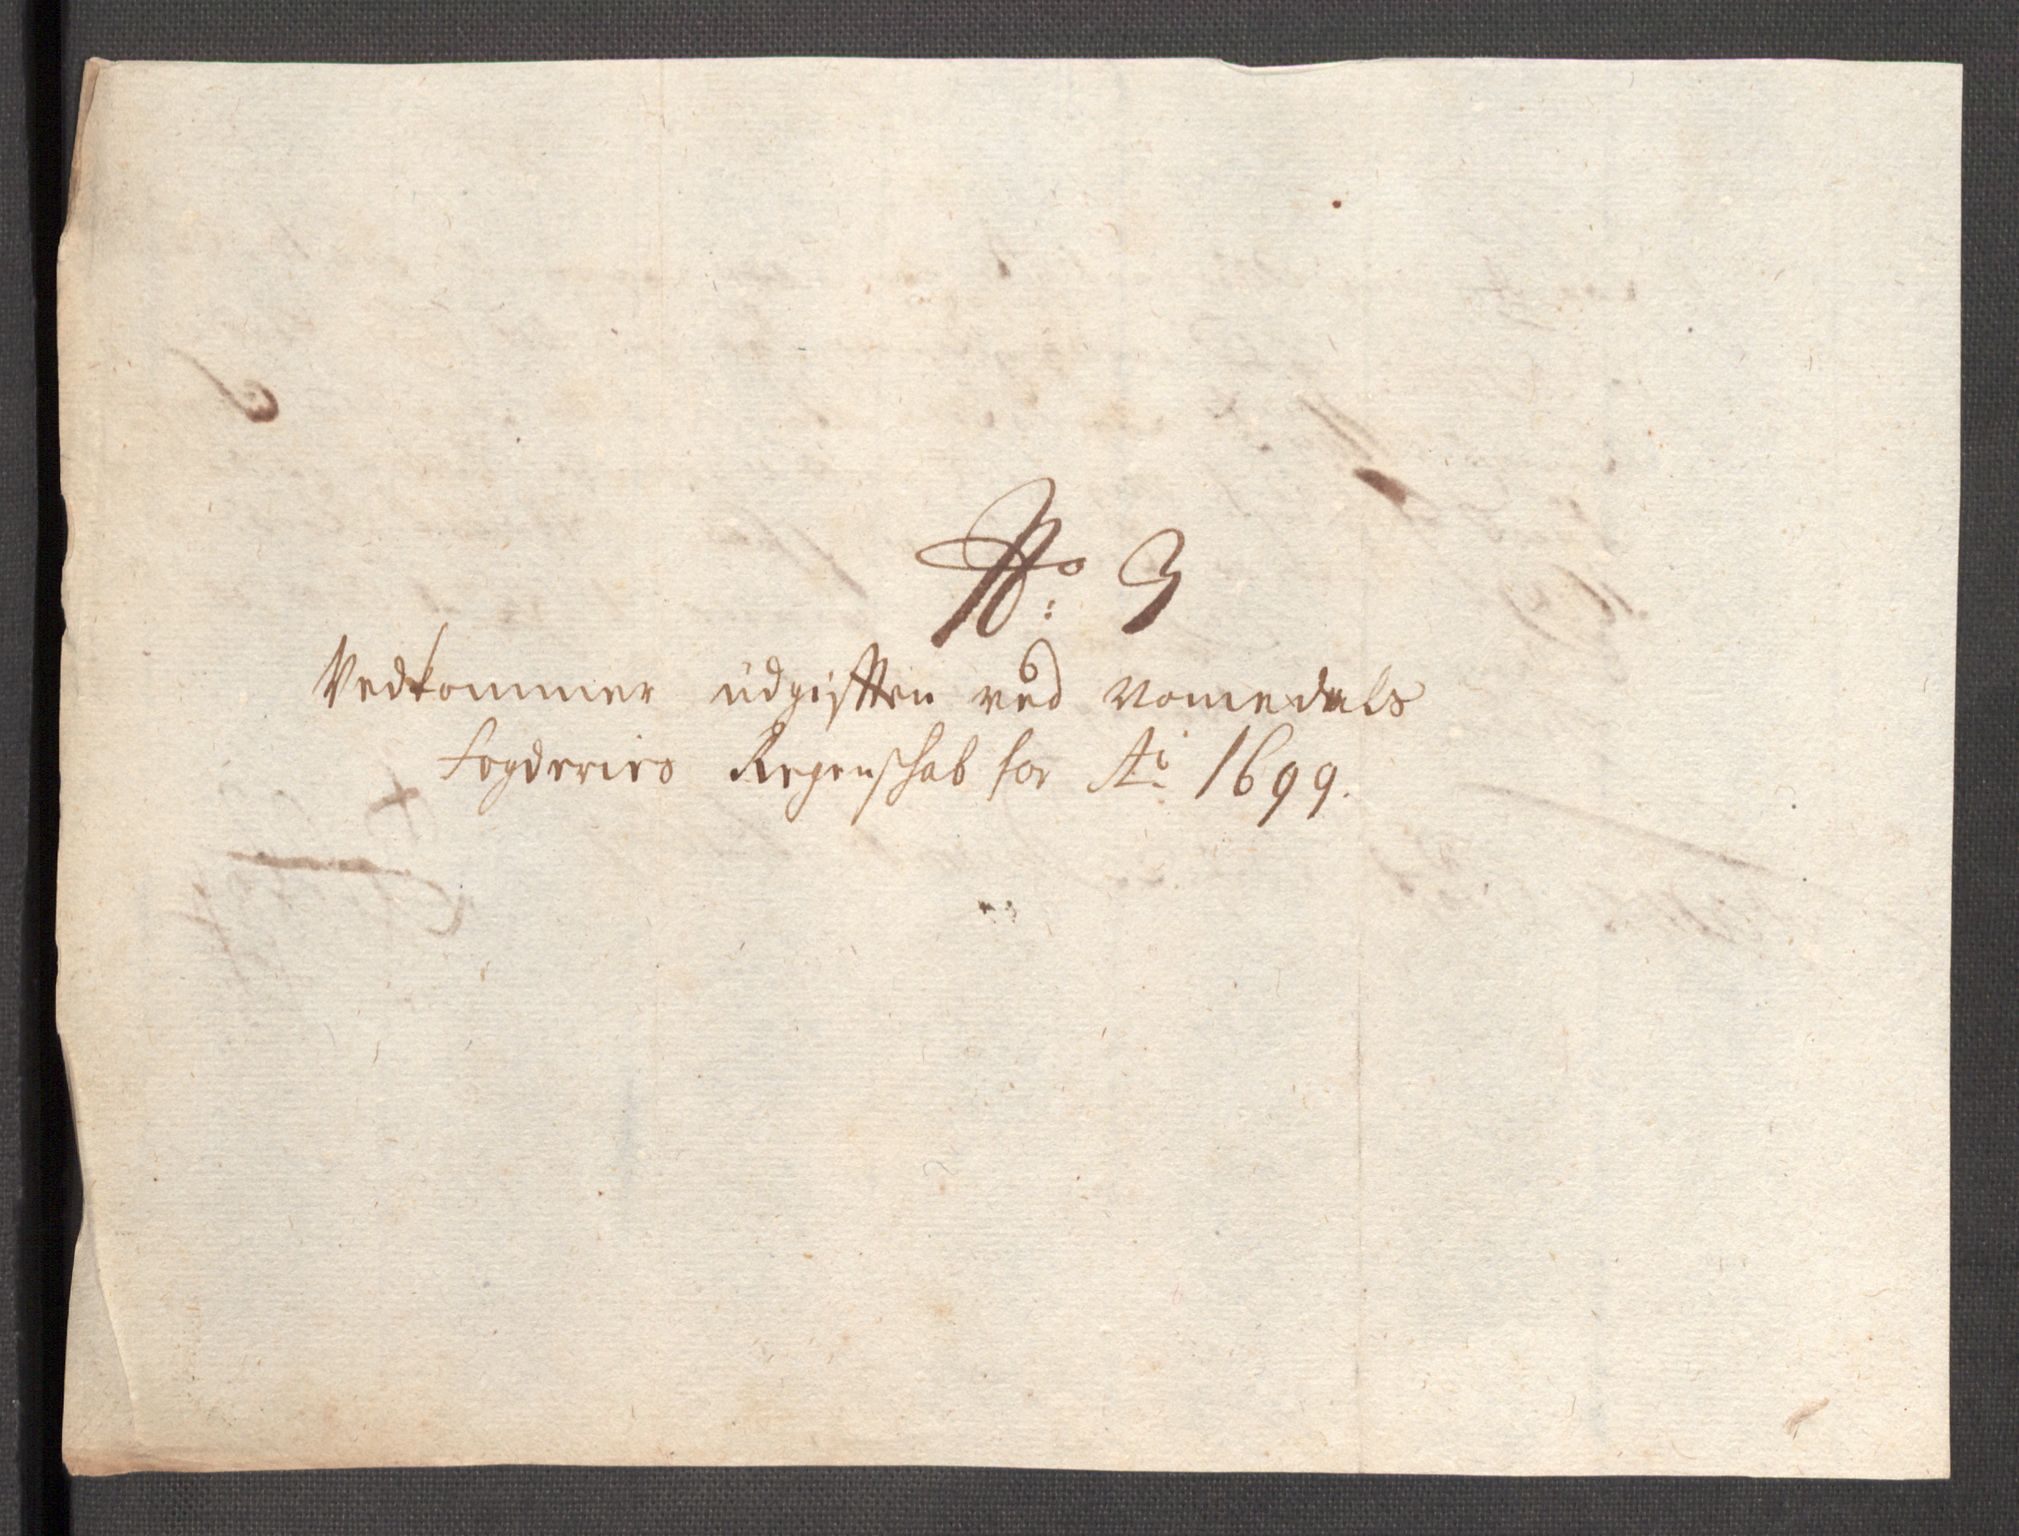 No: 3
Vedkommer udgifften ved Romsdals
fogderies Regenschab for Ai 1699.